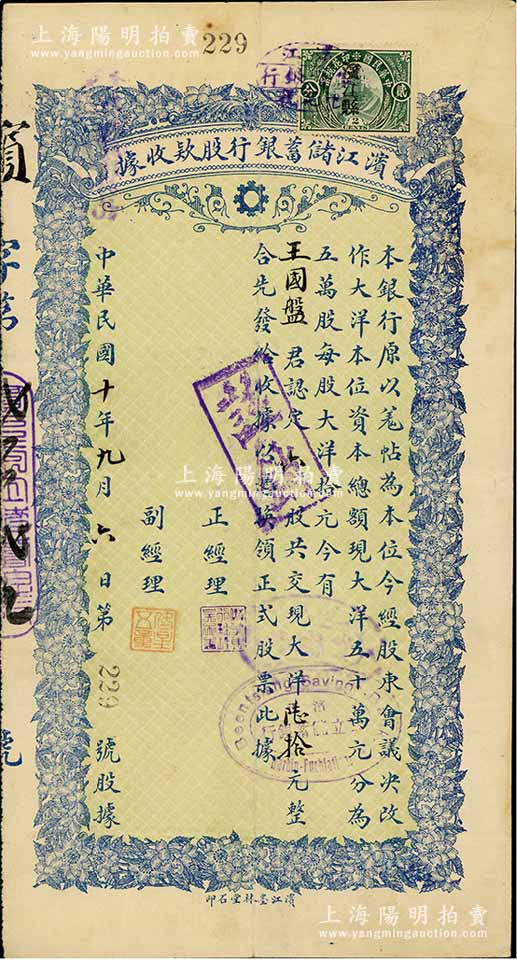 上海陽明拍賣
www.yangmingauction.com
229
濱江縣
貳
分
濱江儲蓄銀行股欵收據
本銀行原以羌帖為本位今經股東會議決改
作大洋本位資本總額現大洋五十萬元分為
五萬股每股大洋拾元今有
王國盤 君認定 六 股共交現大洋陸拾元整
合先發給收據 領正式股票此據
正經理
副經理
中華民國十年九月六日第 229 號股據
字第
號
上海陽明拍賣
www.yangmingauction.com
濱江墨林堂石印
上海陽明拍賣
www.yangmingauction.com